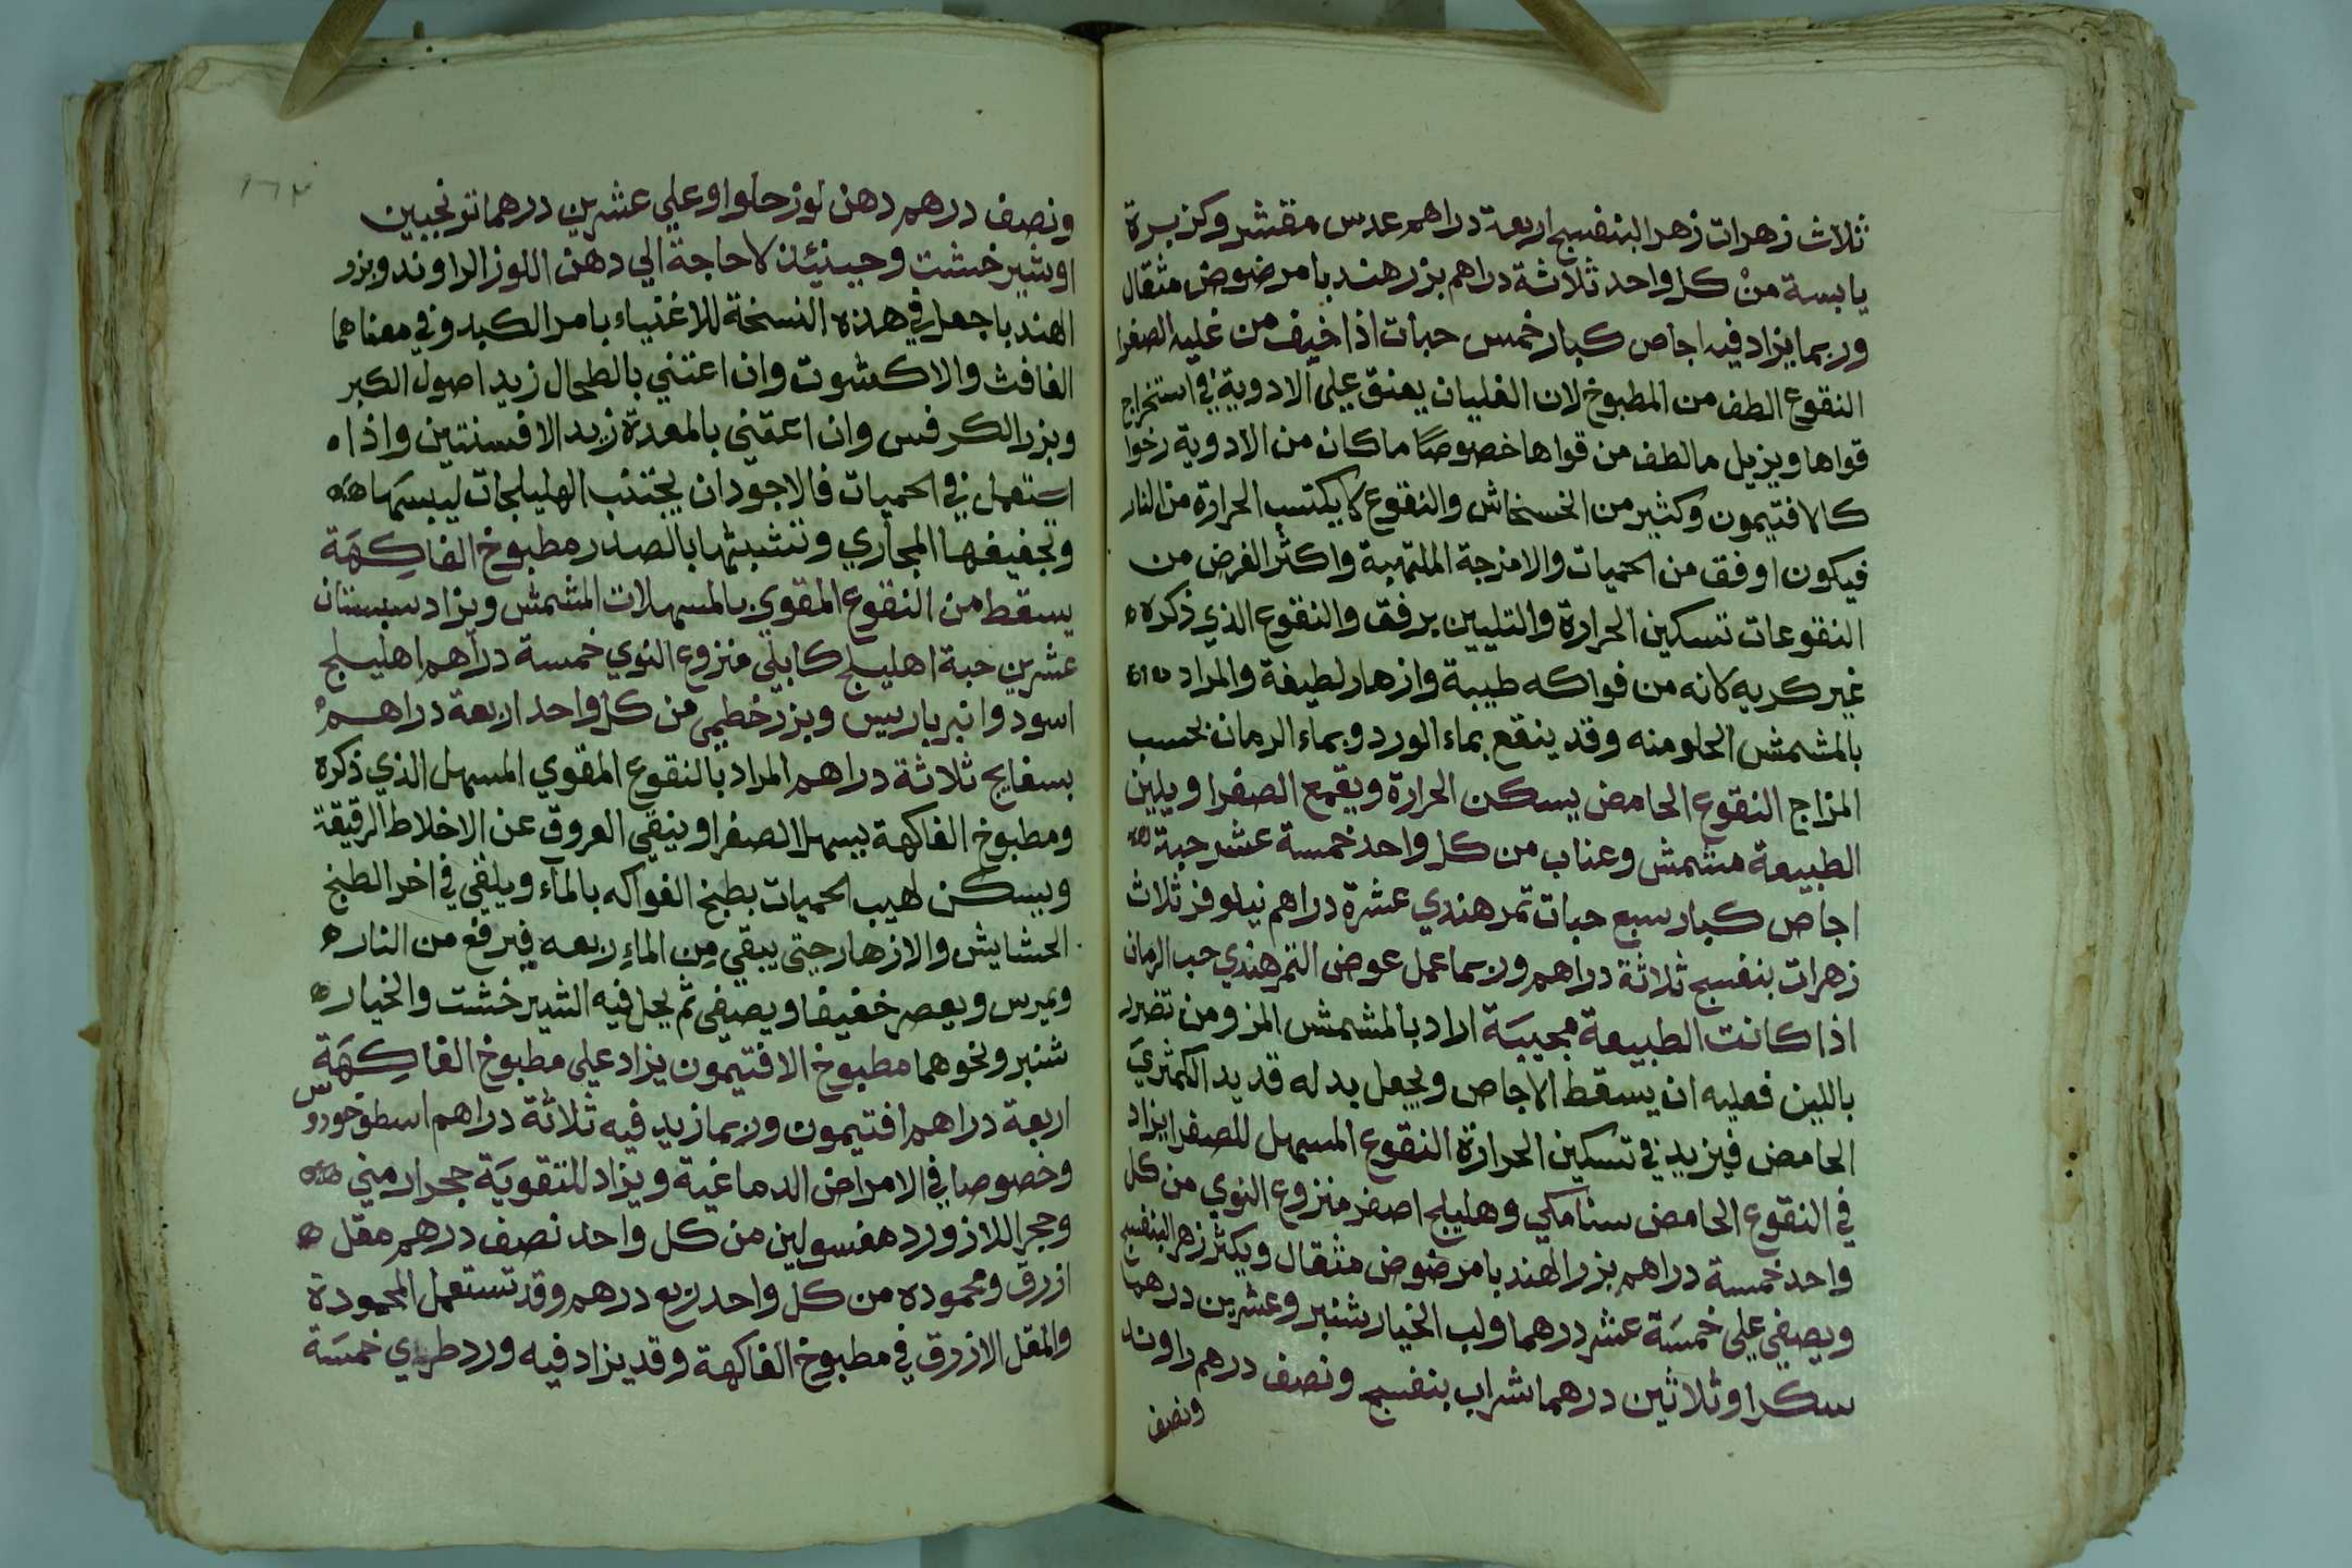 ثلاث زهرات زهر البنفسج اربعة دراهم عدس مقشر وكزبرة
يابسة من كل واحد ثلاثة دراهم بزر هندبا مرضوض مثقال
وربما يزاد فيه اجاص كبار خمس حبات اذا خيف من غلبه الصفرا
النقوع الطف من المطبوخ لان الغليان يعنق علي الادوية في استخراج
قواها ويزيل مالطف من قواها خصوصًا ما كان من الادوية رخوا
كالافتيمون وكثير من الخشخاش والنقوع لا يكتسب الحرارة من النار
فيكون اوفق من الحميات والامزجة الملتهبة واكثر الغرض من
النقوعات تسكين الحرارة والتليين برفق والنقوع الذي ذكره
غير كريه لانه من فواكه طيبة وازهار لطيفة والمراد
بالمشمش الحلو منه وقد ينقع بماء الورد وبماء الرمان بحسب
المزاج النقوع الحامض يسكن الحرارة ويقمع الصفرا ويلين
الطبيعة مشمش وعناب من كل واحد خمسة عشر حبة
اجاص كبار سبع حبات تمر هندي عشرة دراهم نيلوفر ثلاث
زهرات بنفسج ثلاثة دراهم وربما عمل عوض التمر هندي حب الرمان
اذا كانت الطبيعة مجيبة اراد بالمشمش المز ومن تضرر
باللين فعليه ان يسقط الاجاص ويجعل بدله قديد الكمثري
الحامض فيزيد في تسكين الحرارة النقوع المسهل للصفرا يزاد
في النقوع الحامض سنامكي وهليلج اصفر منزوع النوي من كل
واحد خمسة دراهم بزر الهندبا مرضوض مثقال ويكثر زهر البنفسج
ويصفي علي خمسة عشر درهما ولب الخيار شنبر وعشرين درهما
سكر او ثلاثين درهما شراب بنفسج ونصف درهم راوند
ونصف
ونصف درهم دهن لوز حلوا وعلي عشرين درهما ترنجبين
او شير خشت وحينئذ لا حاجة الي دهن اللوز الراوند وبزر
الهندبا جعل في هذه النسخة للاغنياء بامر الكبد وفي معناهما
الغافث والاكشوت وان اعتني بالطحال زيد اصول الكبر
وبزر الكرفس وان اعتني بالمعدة زيد الافسنتين واذا
استعمل في الحميات فالاجود ان يجتنب الهليلجات ليبسها
وتجفيفها المجاري وتشبثها بالصدر مطبوخ الفاكهة
يسقط من النقوع المقوي بالمسهلات المشمش ويزاد سبستان
عشرين حبة اهليلج كابلي منزوع النوي خمسة دراهم اهليلج
اسود وانبرباريس وبزر خطمي من كل واحد اربعة دراهم
بسفايج ثلاثة دراهم المراد بالنقوع المقوي المسهل الذي ذكره
ومطبوخ الفاكهة يسهل الصفرا وينقي العروق عن الاخلاط الرقيقة
ويسكن لهيب الحميات بطبخ الفواكه بالماء ويلقي في اخر الطبخ
الحشايش والازهار حتى يبقي من الماء ربعه فيرفع من النار
ويمرس ويعصر خفيفا ويصفي ثم يحل فيه الشير خشت والخيار
شنبر ونحوهما مطبوخ الافتيمون يزاد علي مطبوخ الفاكهة
اربعة دراهم افتيمون وربما زيد فيه ثلاثة دراهم اسطوخودوس
وخصوصا في الامراض الدماغية ويزاد للتقوية حجر ارمني
وحجر اللازورد مغسولين من كل واحد نصف درهم مقل
ازرق ومحموده من كل واحد ربع درهم وقد تستعمل المحمودة
والمقل الازرق في مطبوخ الفاكهة وقد يزاد فيه ورد طري خمسة